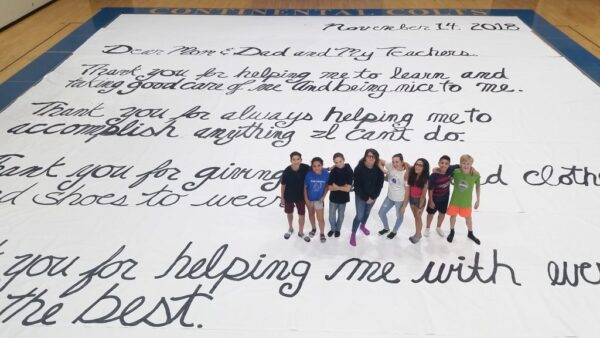 CONTINENTAL COLTS
November 14, 2018
Dear Mom & Dad and My Teachers.
Thank you for helping me to learn and
taking good care of me and being nice to me.
Thank you for always helping me to
accomplish anything I can't do.
Thank you for giving d cloth
d shoes to wea
k you for helping me with eve
the best.